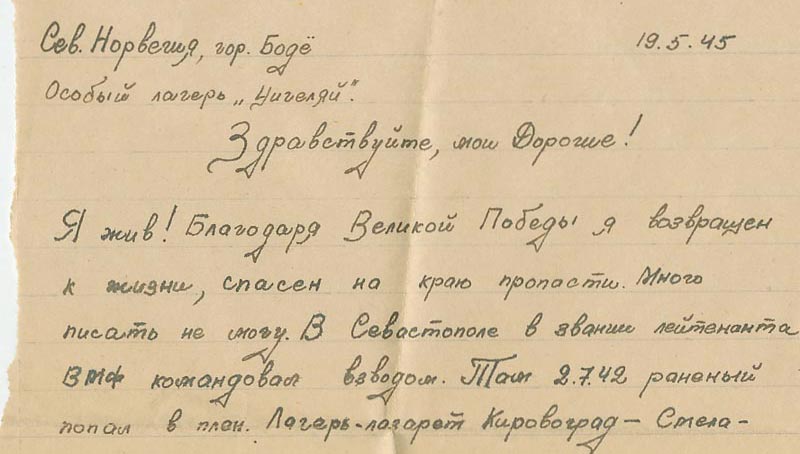 Сев. Норвегия, гор. Бодё 19.5.45
Особый лагерь „Цигеляй".
Здравствуйте, мои Дорогие!
Я жив! Благодаря Великой Победы я возвращен
к жизни, спасен на краю пропасти. Много
писать не могу. В Севастополе в звании лейтенанта
ВМФ командовал взводом. Там 2.7.42 раненый
попал в плен. Лагерь-лазарет Кировоград — Смела-